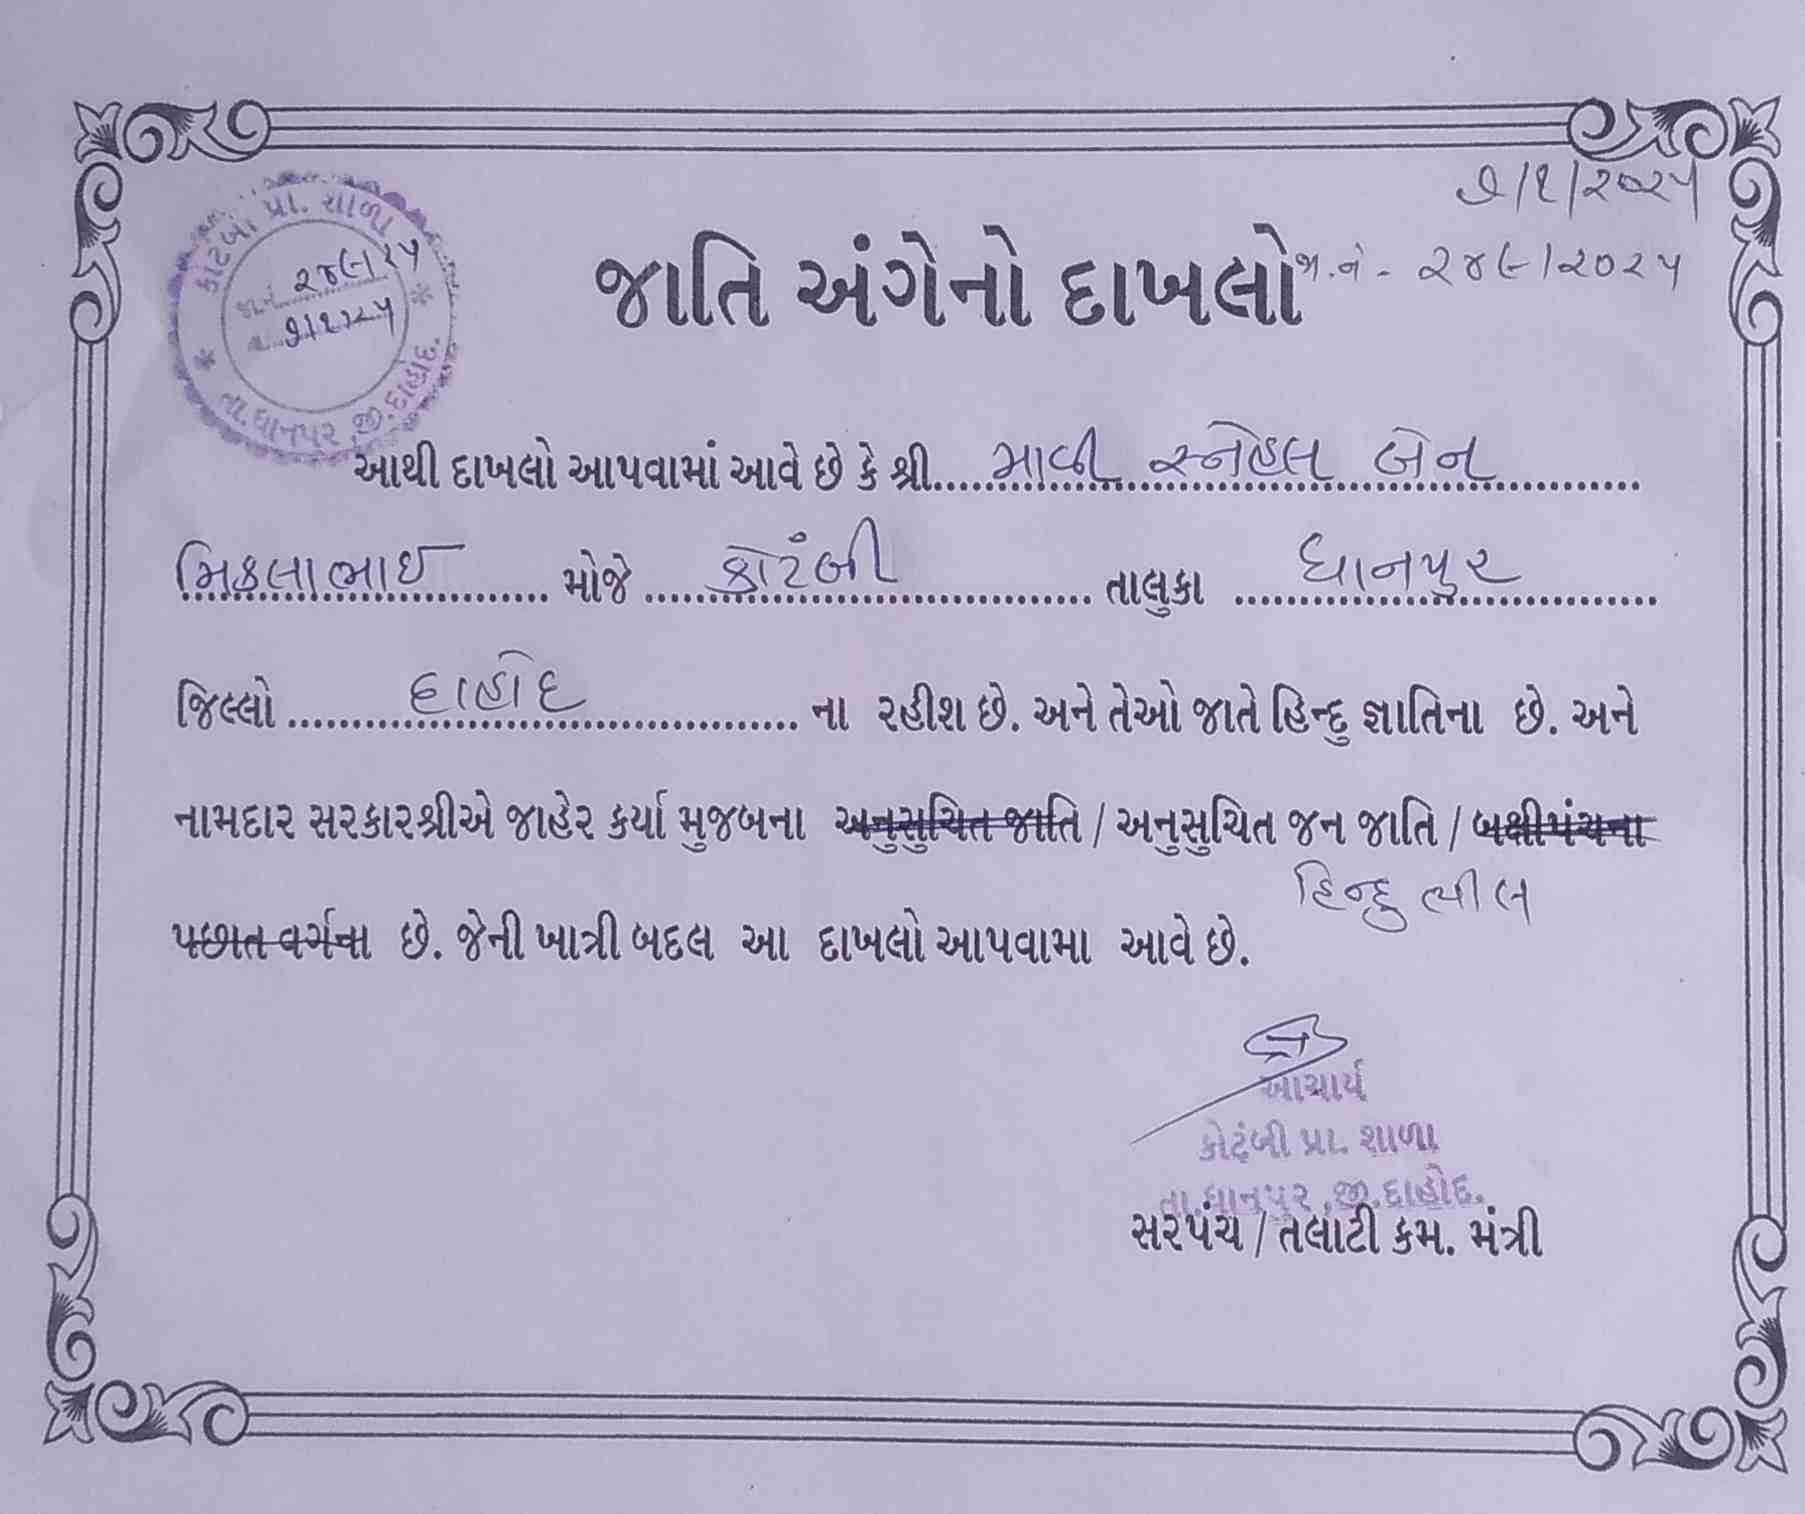 ૭/૧/૨૦૨૫
જાતિ અંગેનો દાખલો
જા.નં - ૨૪૯/૨૦૨૫
કોટંબી પ્રા. શાળા
જા.નં. ૨૪૯/૨૫
તા. ૭/૧/૨૫
તા.ધાનપુર, જી.દાહોદ.
આથી દાખલો આપવામાં આવે છે કે શ્રી માવી સ્નેહલ બેન
મિકલાભાઈ મોજે કોટંબી તાલુકા ધાનપુર
જિલ્લો દાહોદ ના રહીશ છે. અને તેઓ જાતે હિન્દુ જ્ઞાતિના છે. અને
નામદાર સરકારશ્રીએ જાહેર કર્યા મુજબના અનુસુચિત જાતિ / અનુસુચિત જન જાતિ / બક્ષીપંચના
હિન્દુ ભીલ
પછાત વર્ગના છે. જેની ખાત્રી બદલ આ દાખલો આપવામા આવે છે.
આચાર્ય
કોટંબી પ્રા. શાળા
તા.ધાનપુર ,જી.દાહોદ.
સરપંચ / તલાટી કમ. મંત્રી